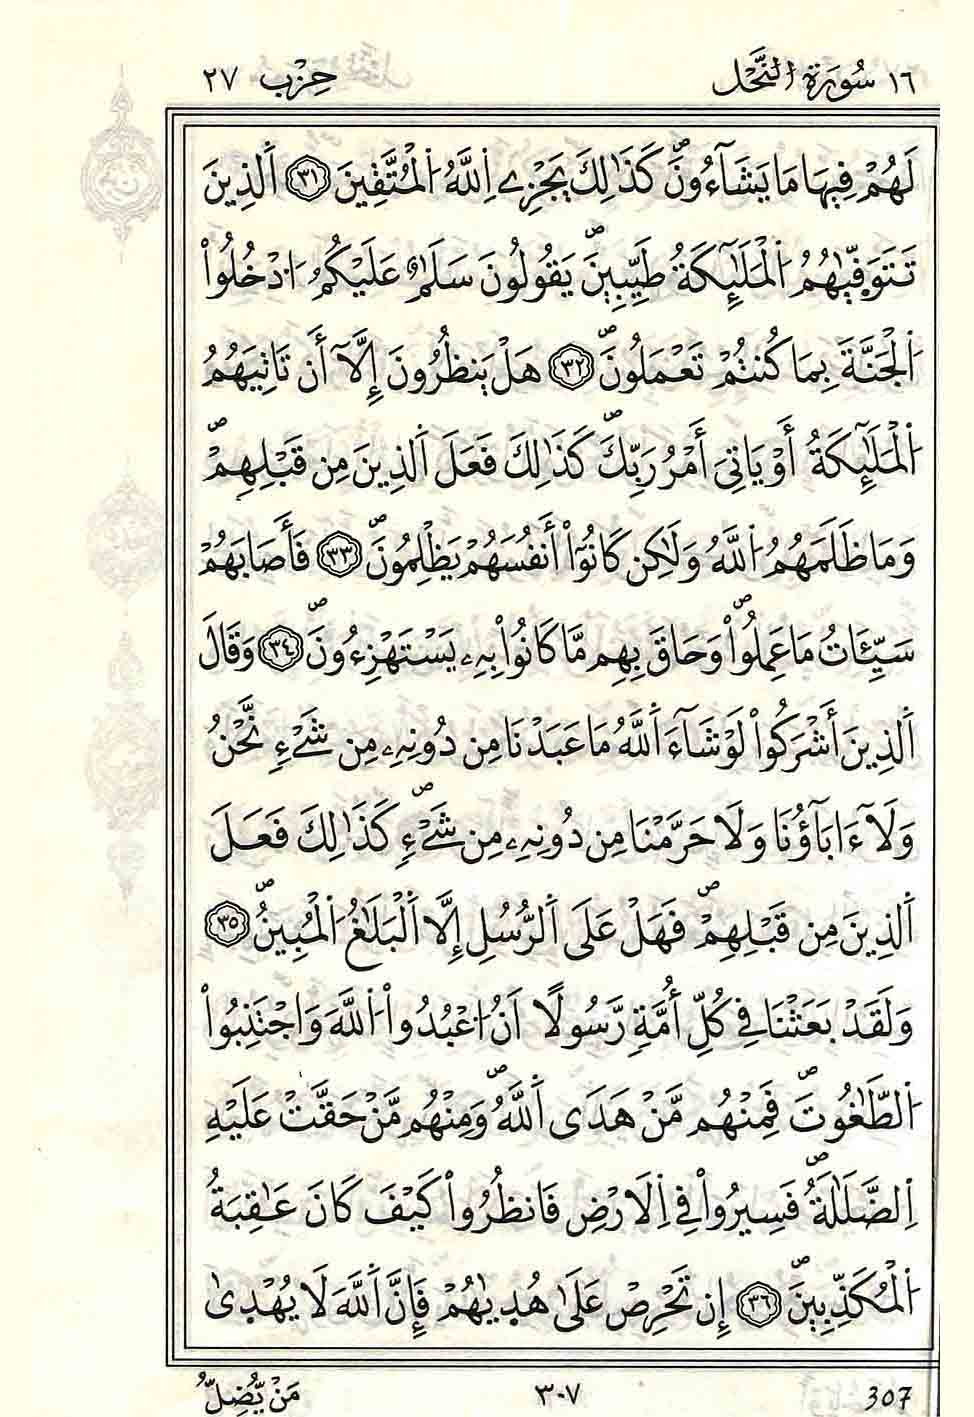 ١٦ سُورَةُ النَّحْل حِزْب ٢٧
لَهُمْ فِيهَا مَا يَشَآءُونَۖ كَذَٰلِكَ يَجْزِے اِ۬للَّهُ اُ۬لْمُتَّقِينَ ٣١ اَ۬لذِينَ
تَتَوَفّ۪يٰهُمُ اُ۬لْمَلَٰٓئِكَةُ طَيِّبِينَۖ يَقُولُونَ سَلَٰمٌ عَلَيْكُمُ اُ۟دْخُلُواْ
اُ۬لْجَنَّةَ بِمَا كُنتُمْ تَعْمَلُونَۖ ٣٢ هَلْ يَنظُرُونَ إِلَّآ أَن تَاتِيَهُمُ
اُ۬لْمَلَٰٓئِكَةُ أَوْ يَاتِيَ أَمْرُ رَبِّكَۖ كَذَٰلِكَ فَعَلَ اَ۬لذِينَ مِن قَبْلِهِمْۖ
وَمَا ظَلَمَهُمُ اُ۬للَّهُ وَلَٰكِن كَانُوٓاْ أَنفُسَهُمْ يَظْلِمُونَۖ ٣٣ فَأَصَابَهُمْ
سَيِّـَٔاتُ مَا عَمِلُواْۖ وَحَاقَ بِهِم مَّا كَانُواْ بِهِۦ يَسْتَهْزِءُونَۖ ٣٤ وَقَالَ
اَ۬لذِينَ أَشْرَكُواْ لَوْ شَآءَ اَ۬للَّهُ مَا عَبَدْنَا مِن دُونِهِۦ مِن شَےْءٖ نَّحْنُ
وَلَآ ءَابَآؤُنَا وَلَا حَرَّمْنَا مِن دُونِهِۦ مِن شَےْءٖۖ كَذَٰلِكَ فَعَلَ
اَ۬لذِينَ مِن قَبْلِهِمْۖ فَهَلْ عَلَى اَ۬لرُّسُلِ إِلَّا اَ۬لْبَلَٰغُ اُ۬لْمُبِينُۖ ٣٥
وَلَقَدْ بَعَثْنَا فِے كُلِّ أُمَّةٖ رَّسُولًا أَنُ اُ۟عْبُدُواْ اُ۬للَّهَ وَاجْتَنِبُواْ
اُ۬لطَّٰغُوتَۖ فَمِنْهُم مَّنْ هَدَى اَ۬للَّهُۖ وَمِنْهُم مَّنْ حَقَّتْ عَلَيْهِ
اِ۬لضَّلَٰلَةُۖ فَسِيرُواْ فِے اِ۬لَارْضِ فَانظُرُواْ كَيْفَ كَانَ عَٰقِبَةُ
اُ۬لْمُكَذِّبِينَۖ ٣٦ إِن تَحْرِصْ عَلَىٰ هُد۪يٰهُمْ فَإِنَّ اَ۬للَّهَ لَا يُهْدَىٰ
307 ٣٠٧ مَنْ يُّضِلُّ